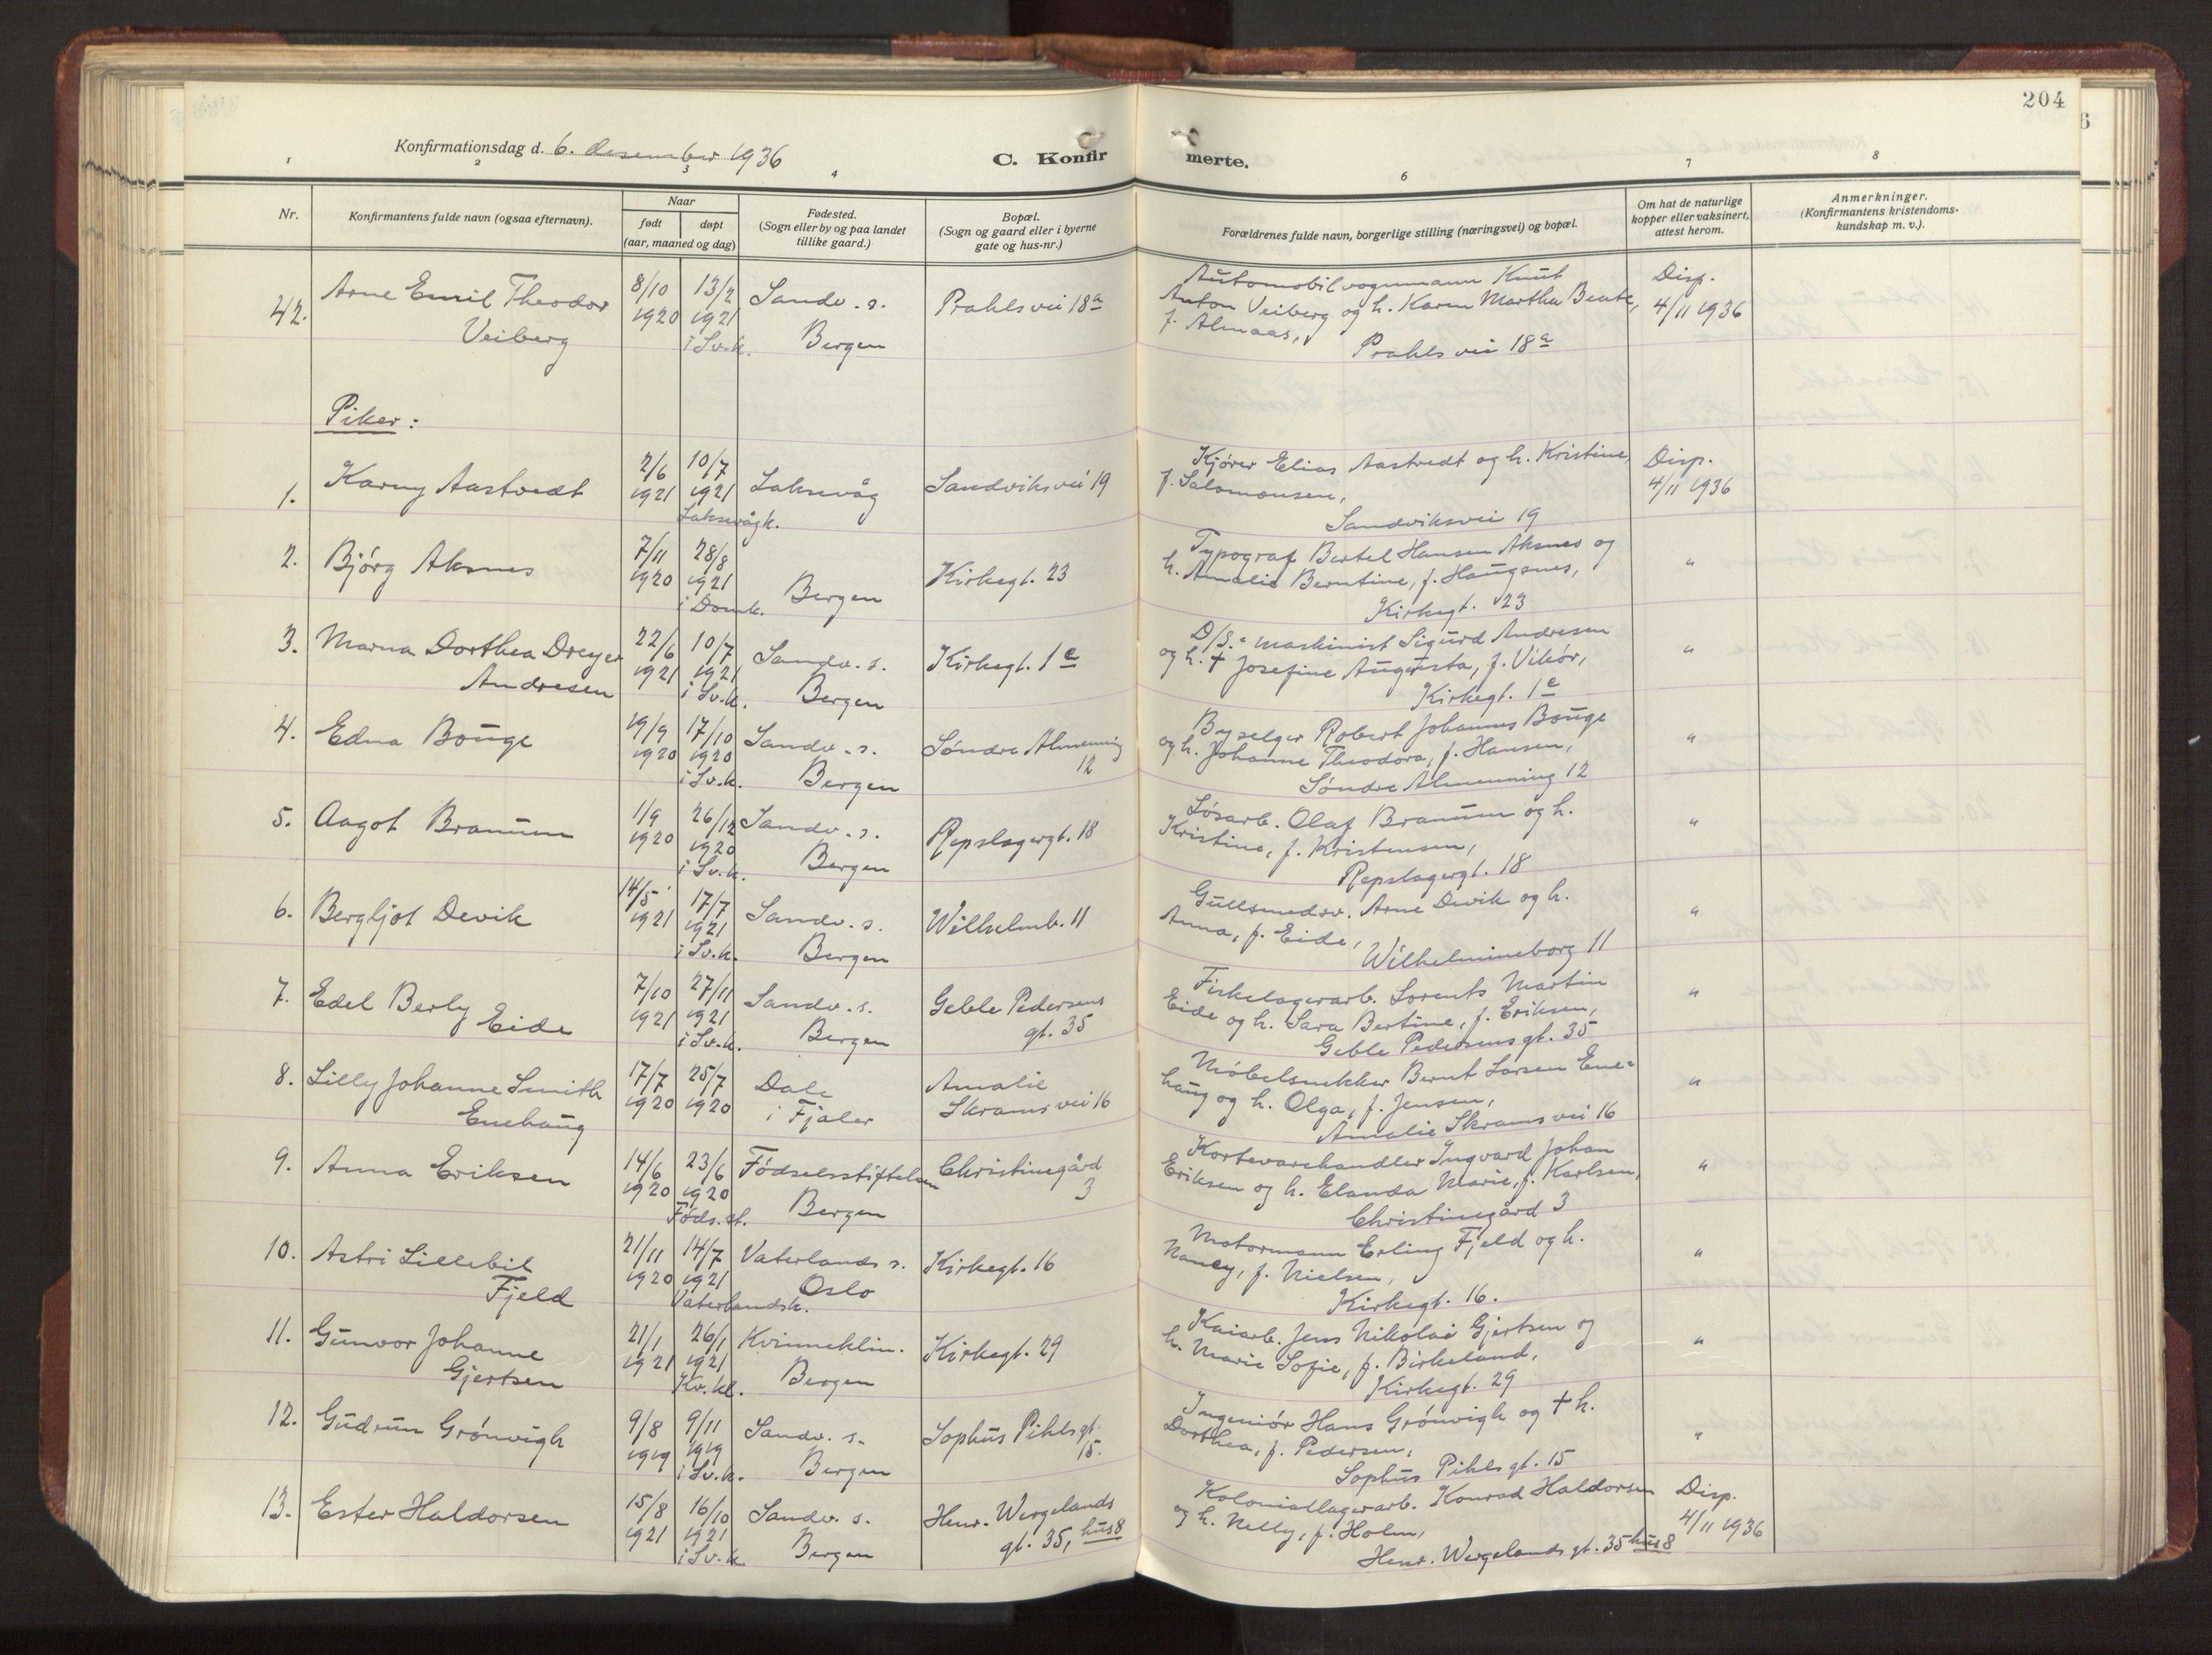 204
Konfirmationsdag d. 6. desember 1936
C. Konfirmerte.
1 2 3 4 6 7 8
Nr.
Konfirmantens fulde navn (ogsaa efternavn).
Naar
født døpt
(aar, maaned og dag)
Fødested.
(Sogn eller by og paa landet
tillike gaard.)
Bopæl.
(Sogn og gaard eller i byerne
gate og hus-nr.)
Forældrenes fulde navn, borgerlige stilling (næringsvei) og bopæl.
Om hat de naturlige
kopper eller vaksinert,
attest herom.
Anmerkninger.
(Konfirmantens kristendoms-
kundskap m. v.).
42. Arne Emil Theodor
Veiberg
8/10
1920
13/2
1921
i Sv.k.
Sandv. s.
Bergen
Prahlsvei 18a
Automobilvognmann Knut
Anton Veiberg og h. Karen Martha Beate,
f. Almaas,
Prahlsvei 18a
Disp.
4/11 1936
Piker:
1. Karny Aastvedt
2/6
1921
10/7
1921
Laksevåg k.
Laksevåg
Sandviksvei 19
Kjører Elias Aastvedt og h. Kristine,
f. Salomonsen,
Sandviksvei 19
Disp.
4/11 1936
2. Bjørg Aksnes
7/11
1920
28/8
1921
i Domk.
Bergen
Kirkegt. 23
Typograf Bertel Hansen Aksnes og
h. Amalie Berntine, f. Haugsnes,
Kirkegt. 23
"
3. Marna Dorthea Dreyer
Andresen
22/6
1921
10/7
1921
i Sv.k.
Sandv. s.
Bergen
Kirkegt. 1e
D/S.' maskinist Sigurd Andresen
og h. † Josefine Augusta, f. Vikør,
Kirkegt. 1e
"
4. Edna Bouge
19/9
1920
17/10
1920
i Sv.k.
Sandv. s.
Bergen
Søndre Almenning
12
Byselger Robert Johannes Bouge
og h. Johanne Theodora, f. Hansen,
Søndre Almenning 12
"
5. Aagot Branum
1/9
1920
26/12
1920
i Sv.k.
Sandv. s.
Bergen
Repslagergt. 18
Løsarb. Olaf Branum og h.
Kristine, f. Kristensen,
Repslagergt. 18
"
6. Bergljot Devik
14/5
1921
17/7
1921
i Sv.k.
Sandv. s.
Bergen
Wilhelmb. 11
Gullsmedsv. Arne Devik og h.
Anna, f. Eide,
Wilhelmineborg 11
"
7. Edel Berly
Eide
7/10
1921
27/11
1921
i Sv.k.
Sandv. s.
Bergen
Geble Pedersens
gt. 35
Fiskelagerarb. Lorents Martin
Eide og h. Sara Bertine, f. Eriksen,
Geble Pedersens gt. 35
"
8. Lilly Johanne Smith
Enehaug
17/7
1920
25/7
1920
Dale
i Fjaler
Amalie
Skrams vei 16
Møbelsnekker Bernt Larsen Ene-
haug og h. Olga, f. Jensen,
Amalie Skrams vei 16
"
9. Anna Eriksen
14/6
1920
23/6
1920
Føds.st.
Fødselsstiftelsen
Bergen
Christinegård
3
Kortevarehandler Ingvard Johan
Eriksen og h. Elanda Marie, f. Karlsen,
Christinegård 3
"
10. Astri Lillebil
Fjeld
21/11
1920
14/7
1921
Vaterlandsk.
Vaterlands s.
Oslo
Kirkegt. 16
Motormann Erling Fjeld og h.
Nancy, f. Nielsen,
Kirkegt. 16.
"
11. Gunvor Johanne
Gjertsen
21/1
1921
26/1
1921
Kv.kl.
Kvinneklin.
Bergen
Kirkegt. 29
Kaiarb. Jens Nikolai Gjertsen og
h. Marie Sofie, f. Birkeland,
Kirkegt. 29
"
12. Gudrun Grønvigh
9/8
1919
9/11
1919
i Sv.k.
Sandv. s.
Bergen
Sophus Pihls gt.
15.
Ingeniør Hans Grønvigh og † h.
Dorthea, f. Pedersen,
Sophus Pihls gt. 15
"
13. Ester Haldorsen
15/8
1921
16/10
1921
i Sv.k.
Sandv. s.
Bergen
Henr. Wergelands
gt. 35, hus 8
Koloniallagerarb. Konrad Haldorsen
og h. Nelly, f. Holm,
Henr. Wergelands gt. 35 hus 8
Disp.
4/11 1936